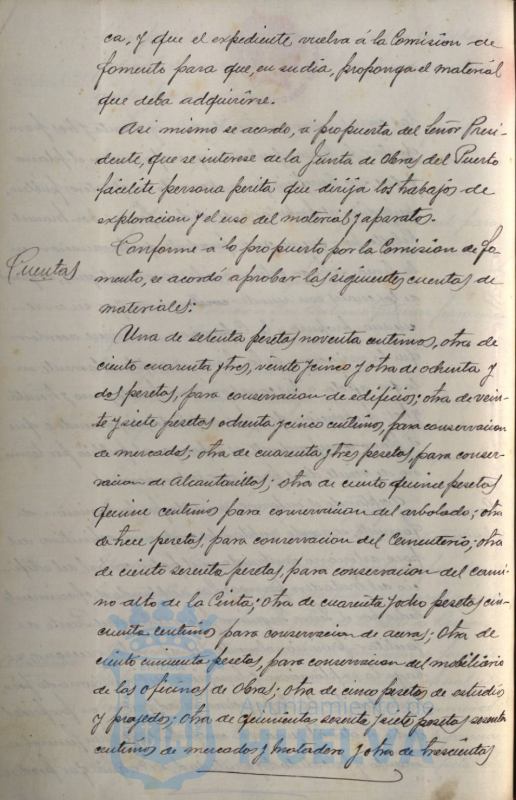 ca, y que el expediente vuelva á la Comision de
fomento para que, en su dia, proponga el material
que deba adquirirse.
Asi mismo se acordo, á propuesta del Señor Presi-
dente, que se interese de la Junta de Obras del Puerto
facilite persona perita que dirija los trabajos de
exploracion y el uso del material y aparatos.
Cuentas
Conforme á lo propuesto por la Comision de fo-
mento, se acordó aprobar las siguientes cuentas de
materiales:
Una de setenta pesetas noventa centimos, otra de
ciento cuarenta y tres, veinte y cinco y otra de ochenta y
dos pesetas, para conservacion de edificios; otra de vein-
te y siete pesetas ochenta y cinco centimos, para conservacion
de mercados; otra de cuarenta y tres pesetas, para conser-
vacion de Alcantarillas; otra de ciento quince pesetas
quince centimos para conservacion del arbolado; otra
de trece pesetas, para conservacion del Cementerio; otra
de ciento sesenta pesetas, para conservacion del cami-
no alto de la Cinta; otra de cuarenta y ocho pesetas cin-
cuenta centimos para conservacion de aceras; otra de
ciento cincuenta pesetas, para conservacion del mobiliario
de las oficinas de Obras; otra de cinco pesetas de estudio
y proyectos; otra de quinientas sesenta y siete pesetas sesenta
centimos de mercados y matadero y otra de trescientas
Ayuntamiento de
HUELVA